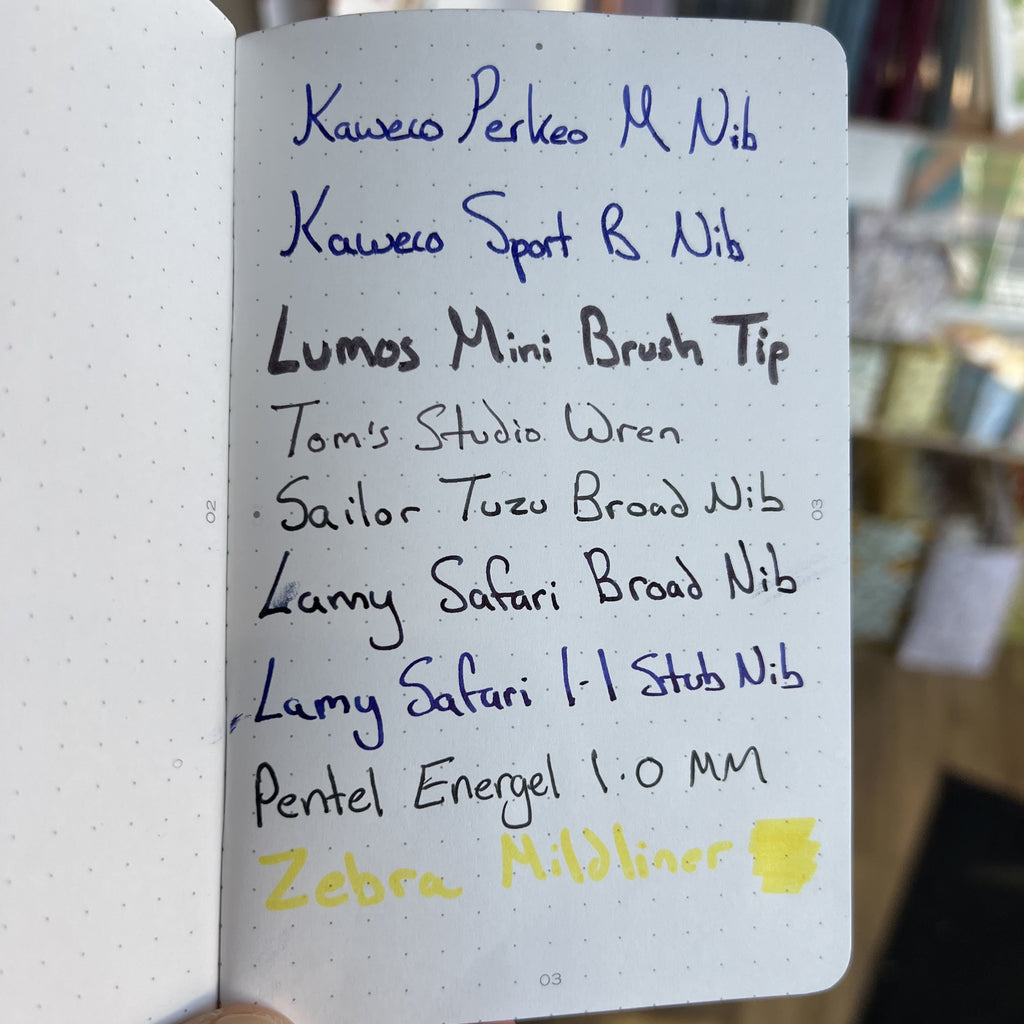 Kaweco Perkeo M Nib
Kaweco Sport B Nib
Lumos Mini Brush Tip
Tom's Studio Wren
Sailor Tuzu Broad Nib
02
03
Lamy Safari Broad Nib
Lamy Safari 1.1 Stub Nib
Pentel Energel 1.0 MM
Zebra Mildliner
03